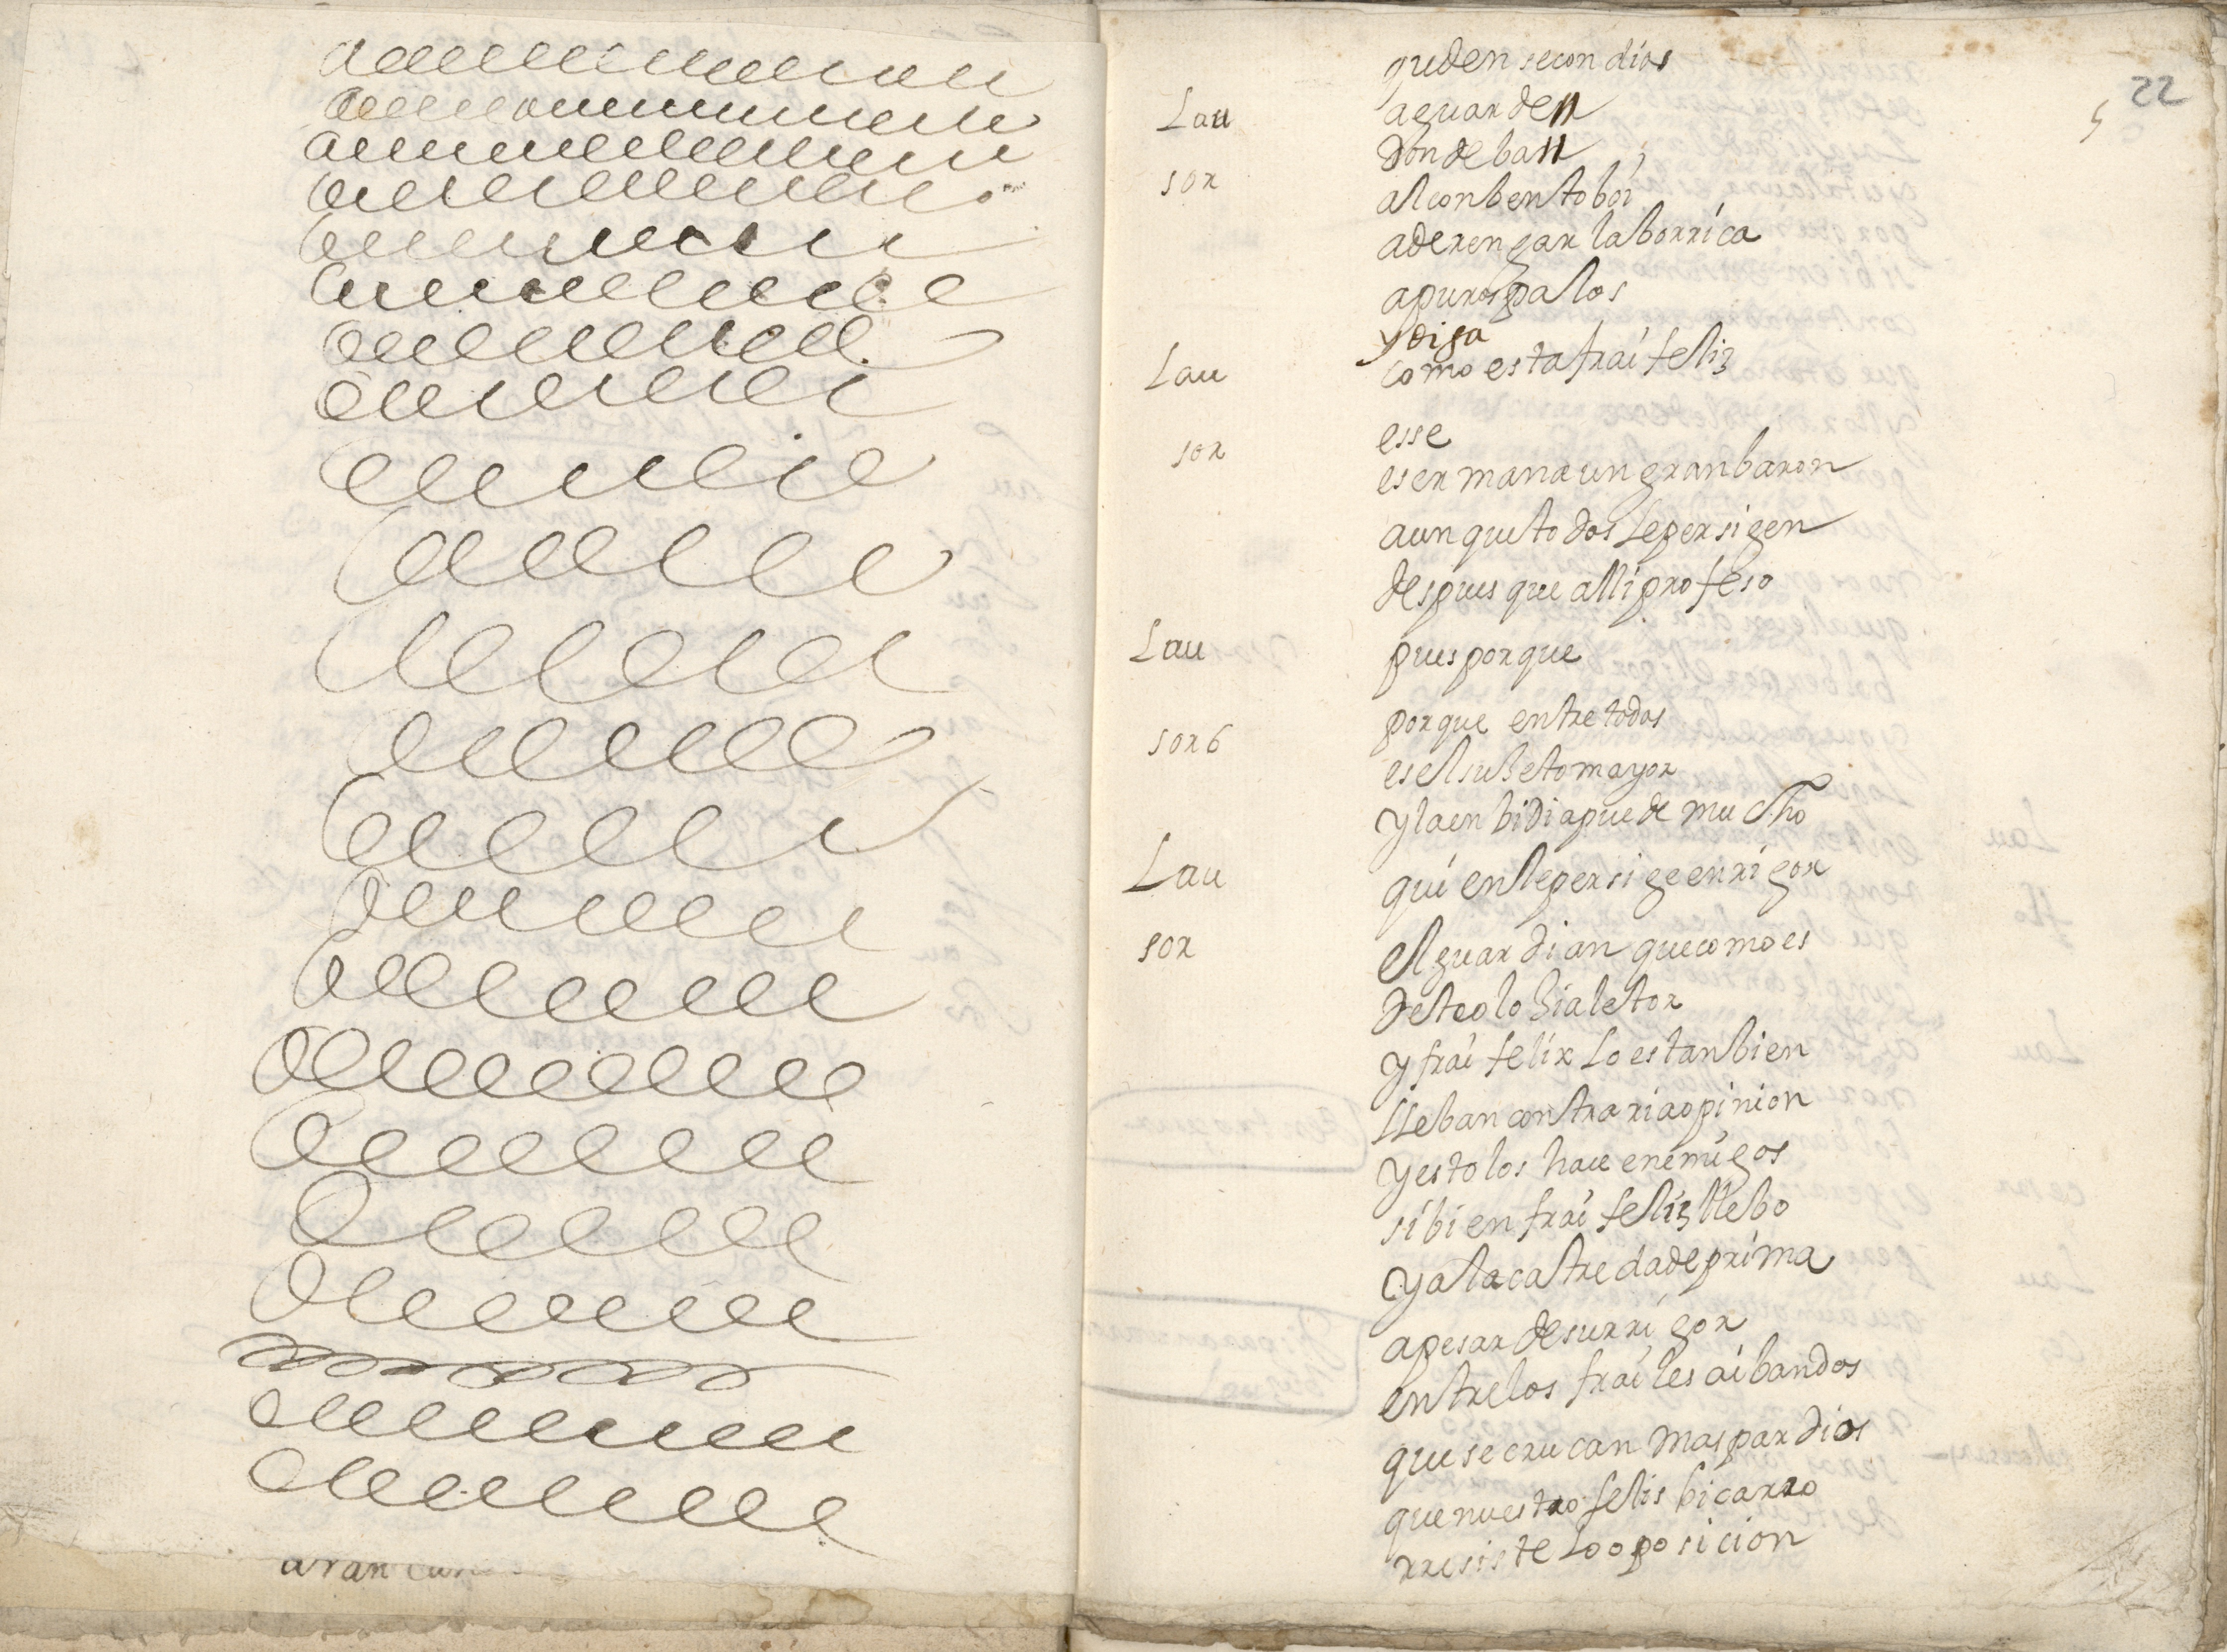 aran
22
5
queden se con dios
Lau aguarden
donde ban
sor al conbento boi
aderençar la borrica
a puros palos
y diga
Lau como esta frai feliz
esse
sor es ermana un gran baron
aunque todos le persigen
despues que alli profeso
Lau pues porque
sor porque entre todos
es el suieto mayor
y la enbidia puede mucho
Lau quien le persige en rigor
sor el guardian que como es
de teolohia letor
y frai felix lo es tanbien
lleban contraria opinion
y esto los hace enemigos
si bien frai feliz llebo
ya la catreda de prima
a pesar de su rrigor
entre los frailes ai bandos
que se crucan mas par dios
que nuestro felis bicarro
rresiste lo oposicion